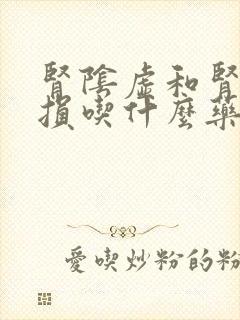 腎陰虛和腎
損喫什麼藥
愛喫炒粉的粉